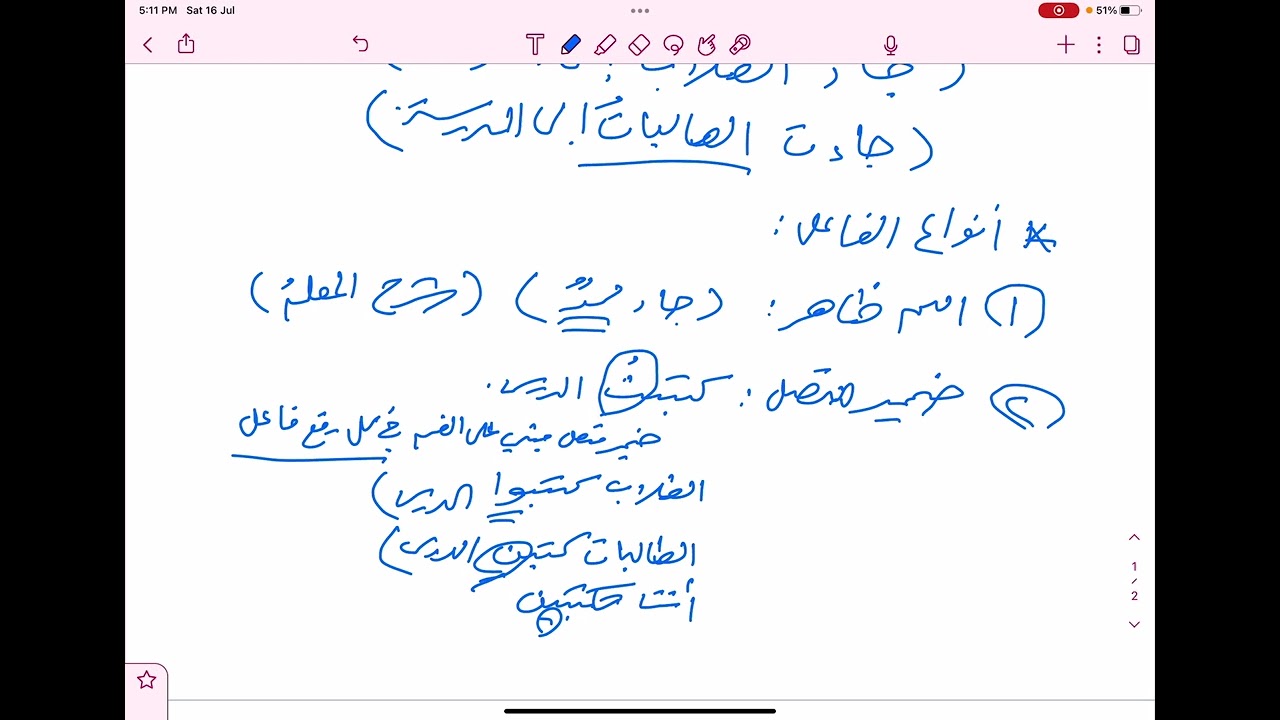 5:11 PM Sat 16 Jul
51%
(جاء الطلاب إلى
(جاءت الطالباتُ إلى المدرسة)
* أنواع الفاعل:
١) اسم ظاهر: (جاء محمدٌ) (شرح المعلمُ)
٢) ضمير متصل: كتبتُ الدرس.
ضمير متصل مبني على الضم في محل رفع فاعل
الطلاب كتبوا الدرس)
الطالبات كتبن الدرس)
أنت تكتبين
1
2